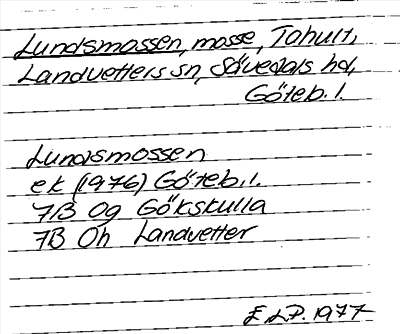 Lundsmossen, mosse, Tahult,
Landvetters sn, Sävedals hd,
Göteb. l.
Lundsmossen
ek (1976) Göteb. l.
7B 0g Gökskulla
7B 0h Landvetter
E LP. 1977